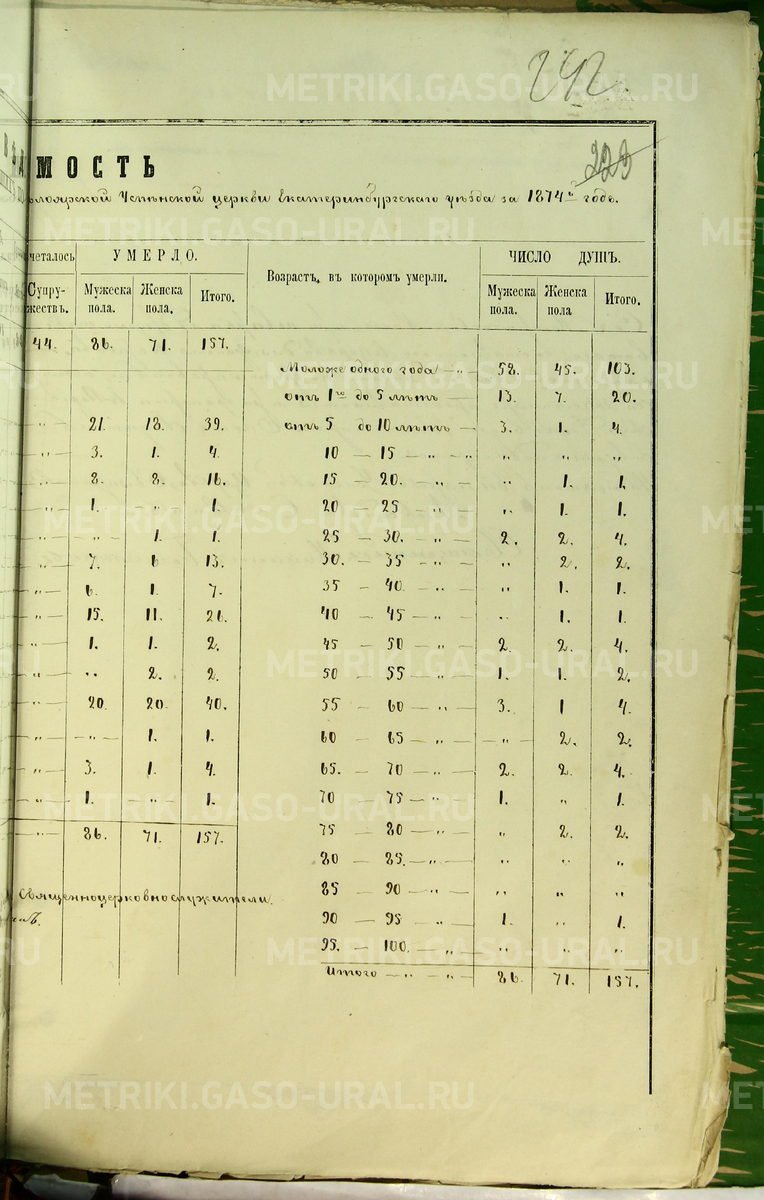 242.
229
МОСТЬ
Успенской церкви Екатеринбургскаго уѣзда за 1874й годъ.
четалось
УМЕРЛО.
Возрастъ, въ которомъ умерли.
ЧИСЛО ДУШЪ.
Супру-
жествъ.
Мужеска
пола.
Женска
пола.
Итого.
Мужеска
пола.
Женска
пола
Итого.
44. 86. 71. 157.
Моложе одного года — „ — 58. 45. 103.
отъ 1го до 5 лѣтъ — 13. 7. 20.
21. 18. 39. отъ 5 до 10 лѣтъ — 3. 1. 4.
„ 3. 1. 4. 10 — 15 — „ — „ „ „ „
„ 8. 8. 16. 15 — 20. — „ — „ 1. 1.
„ 1. „ 1. 20 25 „ „ 1. 1.
„ 1. 1. 25 — 30. — „ — 2. 2. 4.
„ 7. 6 13. 30. — 35 — „ — „ 2. 2.
„ 6. 1. 7. 35 — 40. — „ — „ 1. 1.
„ 15. 11. 26. 40 — 45 — „ — „ 1. 1.
„ 1. 1. 2. 45 — 50 — „ — 2. 2. 4.
„ „ 2. 2. 50 — 55 — „ — 1. 1. 2.
„ 20. 20. 40. 55 — 60 — „ — 3. 1 4.
„ — „ — 1. 1. 60 — 65 — „ — — „ — 2. 2.
„ 3. 1. 4. 65. — 70 — „ — 2. 2. 4.
„ 1. „ 1. 70 75 — „ — 1. „ 1.
„ 86. 71. 157. 75 — 80 — „ — „ 2. 2.
80 — 85. — „ „ „ „
Священноцерковнослужители. 85 — 90 — „ — „ „ „
90 — 95 — „ — 1. „ 1.
95. — 100. — „ „ „ „
Итого — „ — „ — 86. 71. 157.
METRIKI.GASO-URAL.RU
METRIKI.GASO-URAL.RU
METRIKI.GASO-URAL.RU
METRIKI.GASO-URAL.RU
METRIKI.GASO-URAL.RU
METRIKI.GASO-URAL.RU
METRIKI.GASO-URAL.RU
METRIKI.GASO-URAL.RU